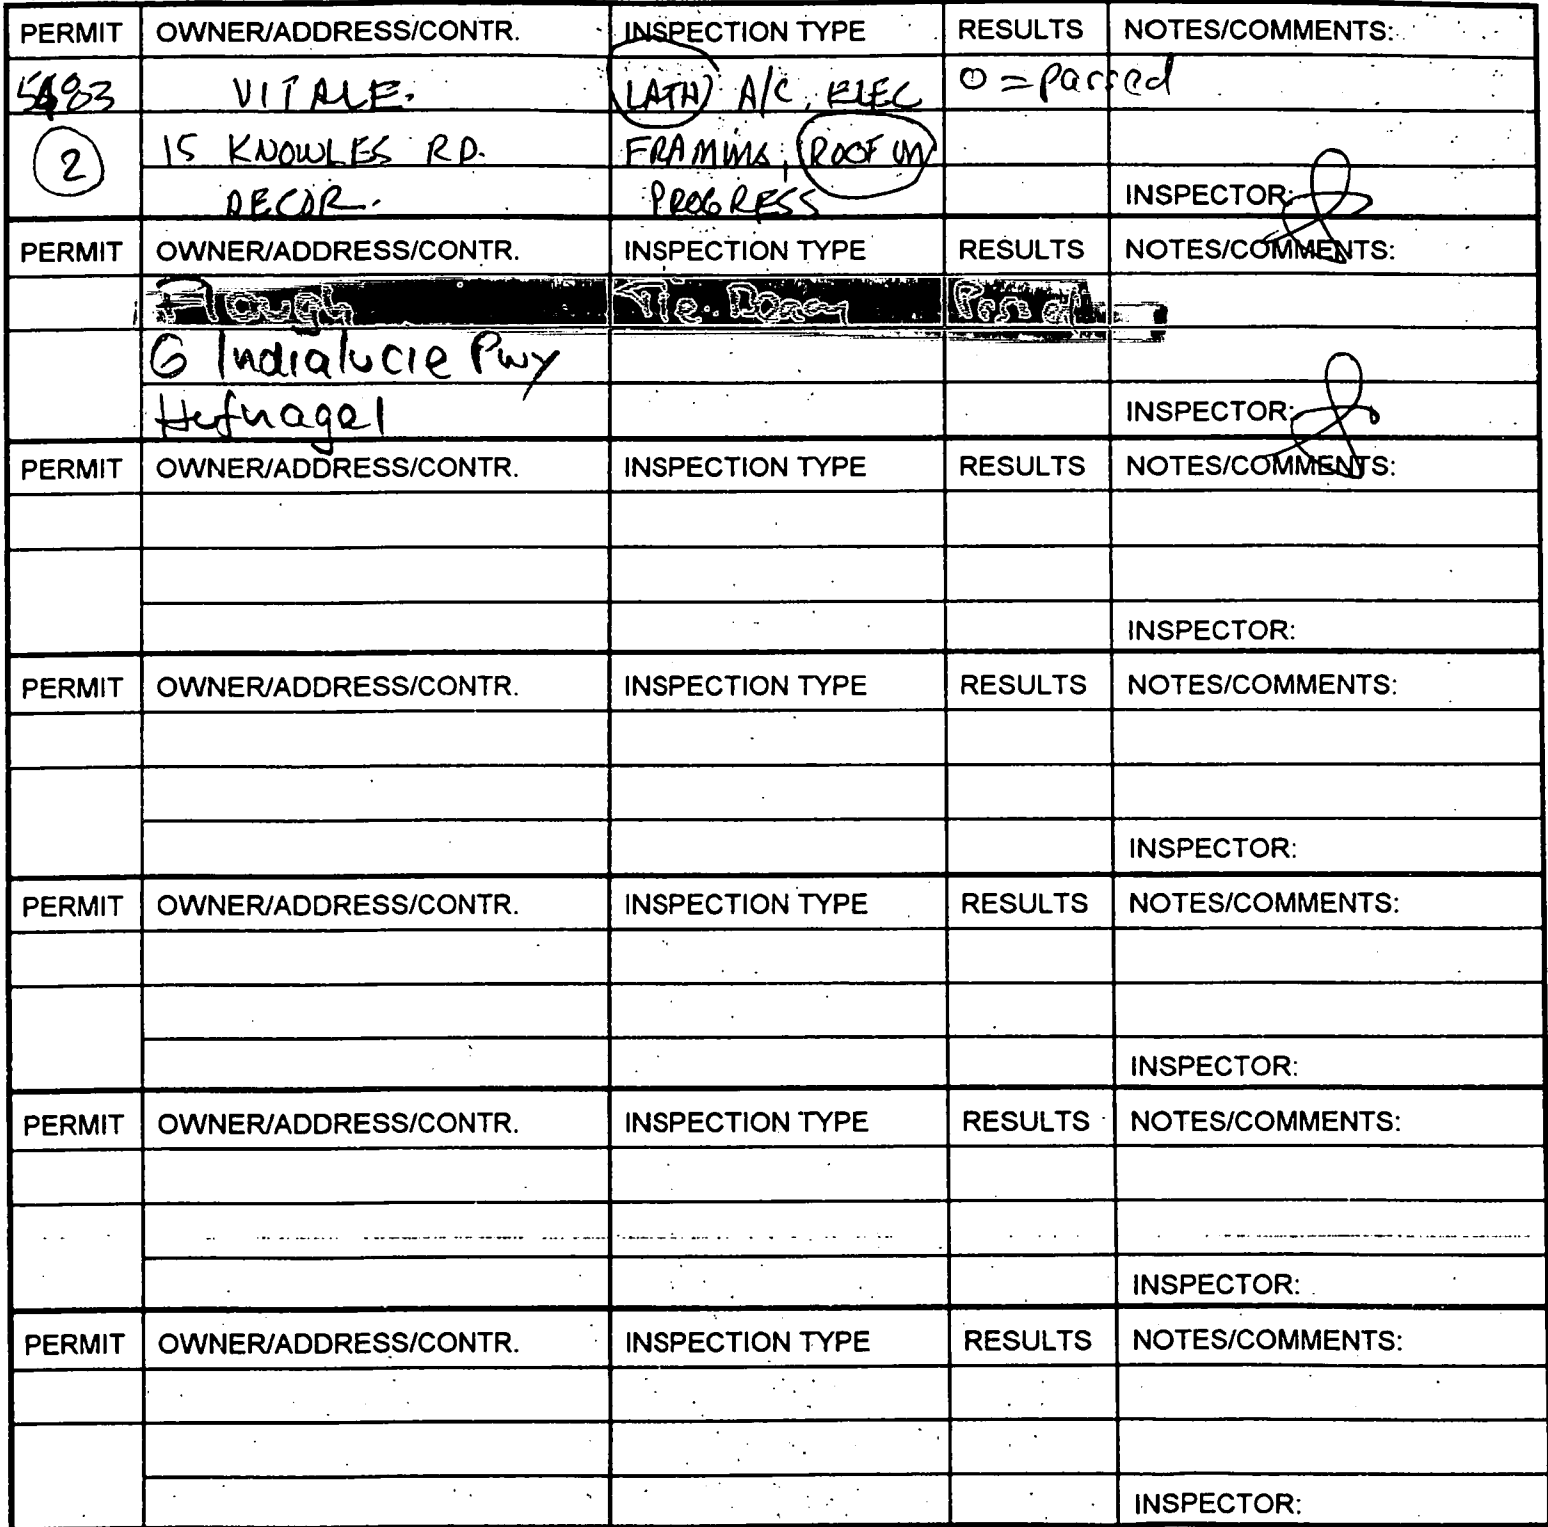 PERMIT OWNER/ADDRESS/CONTR. INSPECTION TYPE RESULTS NOTES/COMMENTS:
VITALE. LATH A/C, ELEC O = Passed
2 15 KNOWLES RD. FRAMING, ROOF IN
DECOR. PROGRESS INSPECTOR:
PERMIT OWNER/ADDRESS/CONTR. INSPECTION TYPE RESULTS NOTES/COMMENTS:
Plough Tie Beam Passed
6 Indialucie Pwy
Hufnagel INSPECTOR:
PERMIT OWNER/ADDRESS/CONTR. INSPECTION TYPE RESULTS NOTES/COMMENTS:
INSPECTOR:
PERMIT OWNER/ADDRESS/CONTR. INSPECTION TYPE RESULTS NOTES/COMMENTS:
INSPECTOR:
PERMIT OWNER/ADDRESS/CONTR. INSPECTION TYPE RESULTS NOTES/COMMENTS:
INSPECTOR:
PERMIT OWNER/ADDRESS/CONTR. INSPECTION TYPE RESULTS NOTES/COMMENTS:
INSPECTOR:
PERMIT OWNER/ADDRESS/CONTR. INSPECTION TYPE RESULTS NOTES/COMMENTS:
INSPECTOR: